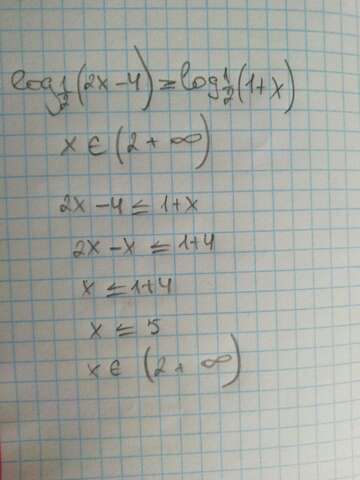 log½(2x-4) ≥ log½(1+x)
x ∈ (2 + ∞)
2x-4 ≤ 1+x
2x-x ≤ 1+4
x ≤ 1+4
x ≤ 5
x ∈ (2 + ∞)